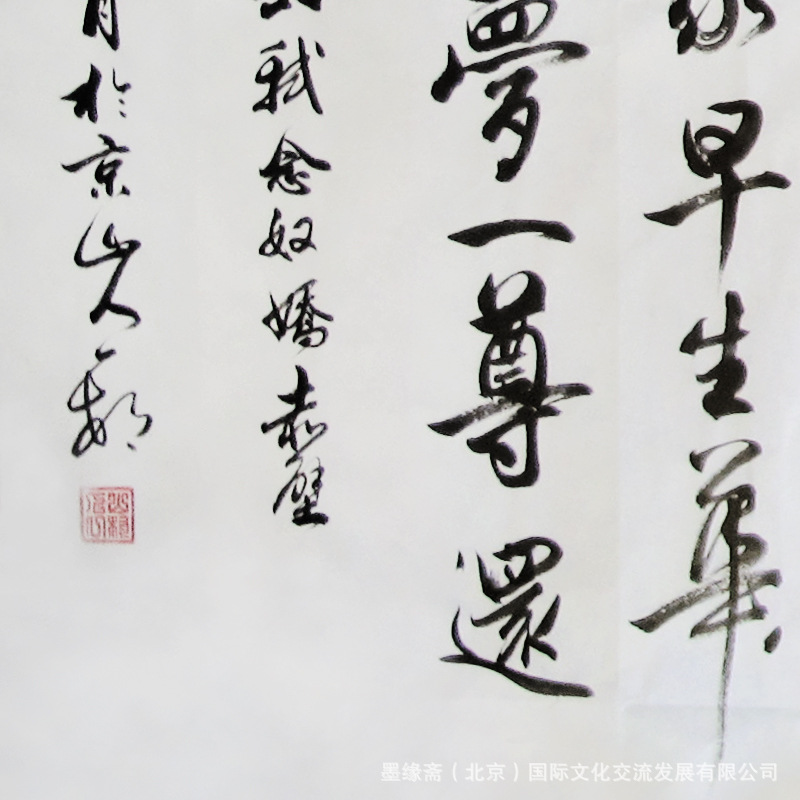 早生華
夢一尊還
軾念奴嬌赤壁
月於京
墨缘斋（北京）国际文化交流发展有限公司